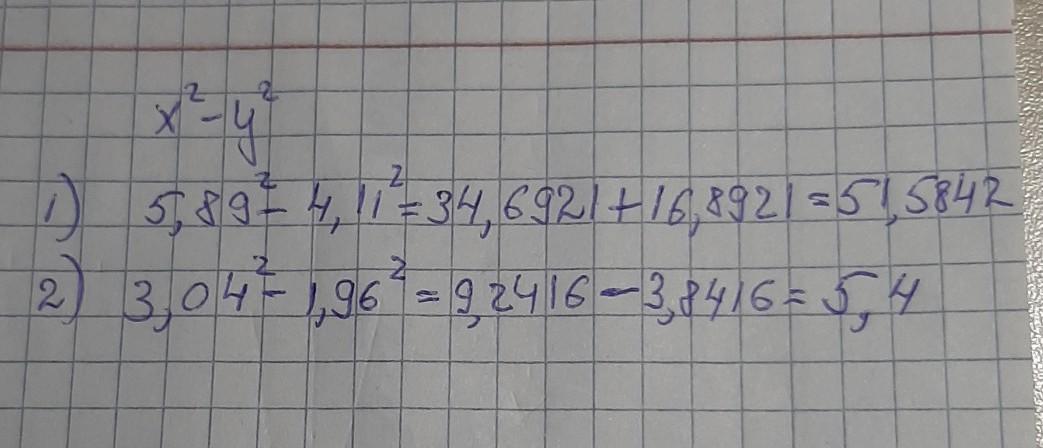 x² - y²
1) 5,89² - 4,11² = 34,6921 + 16,8921 = 51,5842
2) 3,04² - 1,96² = 9,2416 - 3,8416 = 5,4